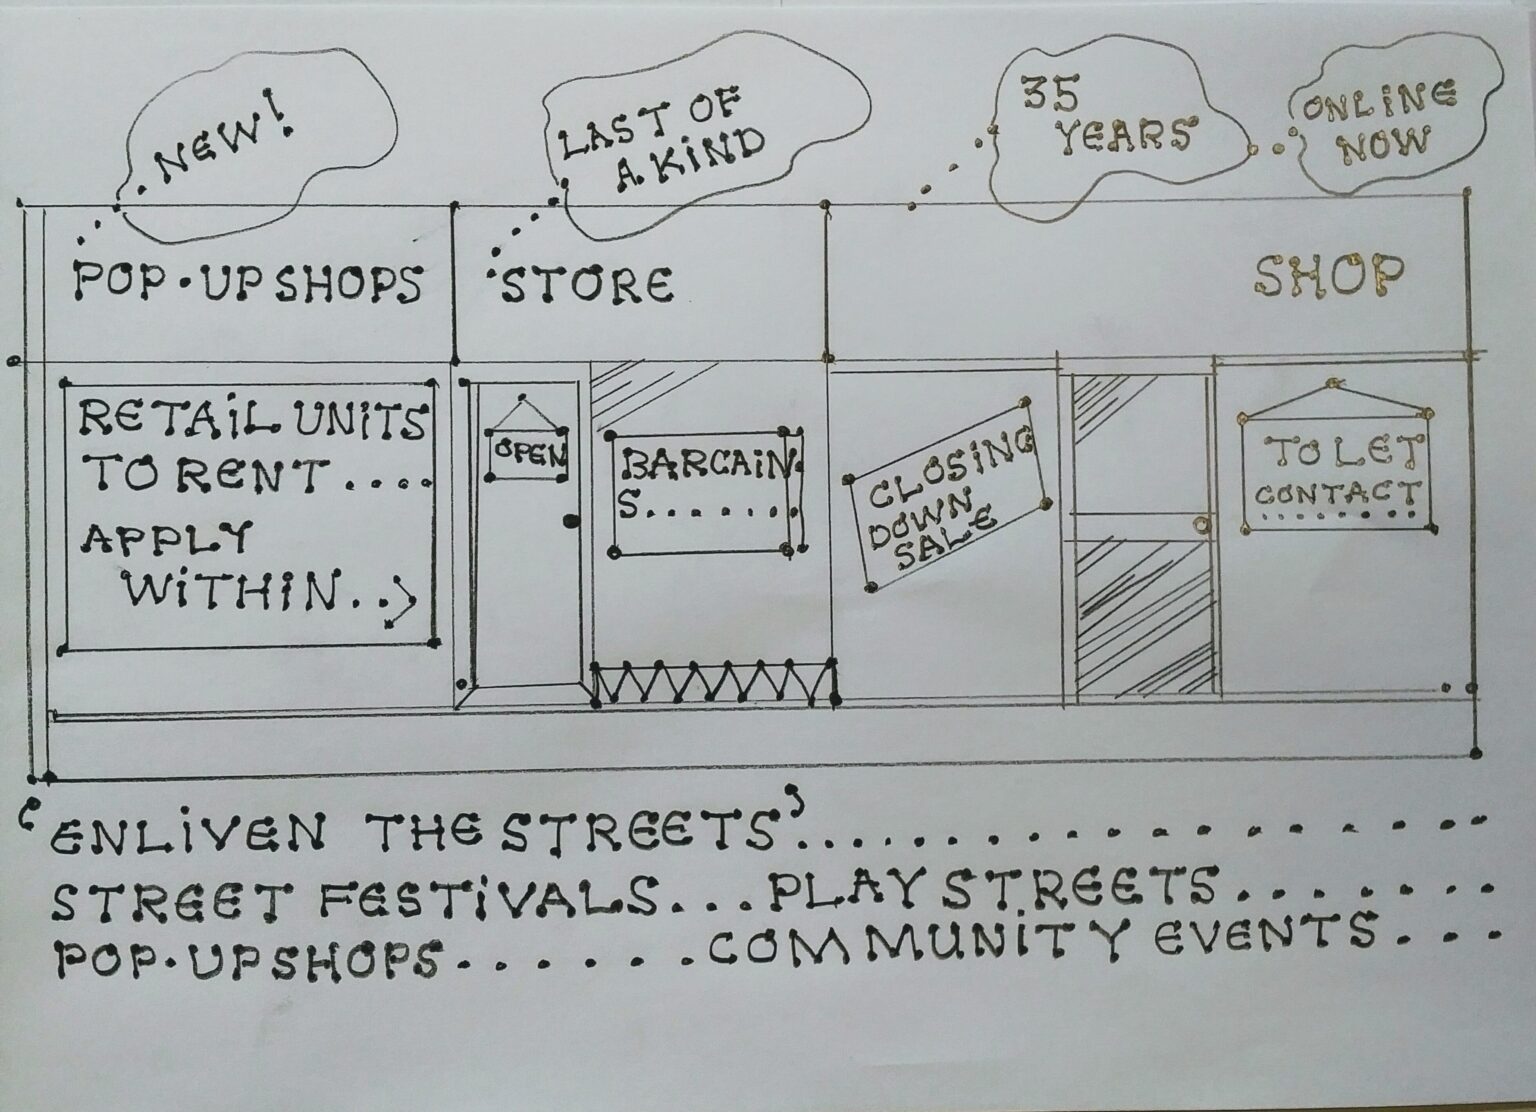 NEW!
LAST OF
A KIND
35
YEARS
ONLINE
NOW
POP·UP SHOPS
STORE
SHOP
RETAIL UNITS
TO RENT....
APPLY
WITHIN..>
OPEN
BARGAIN
S.......
CLOSING
DOWN
SALE
TO LET
CONTACT
........
'ENLIVEN THE STREETS'..................
STREET FESTIVALS...PLAY STREETS.......
POP·UP SHOPS.......COMMUNITY EVENTS...